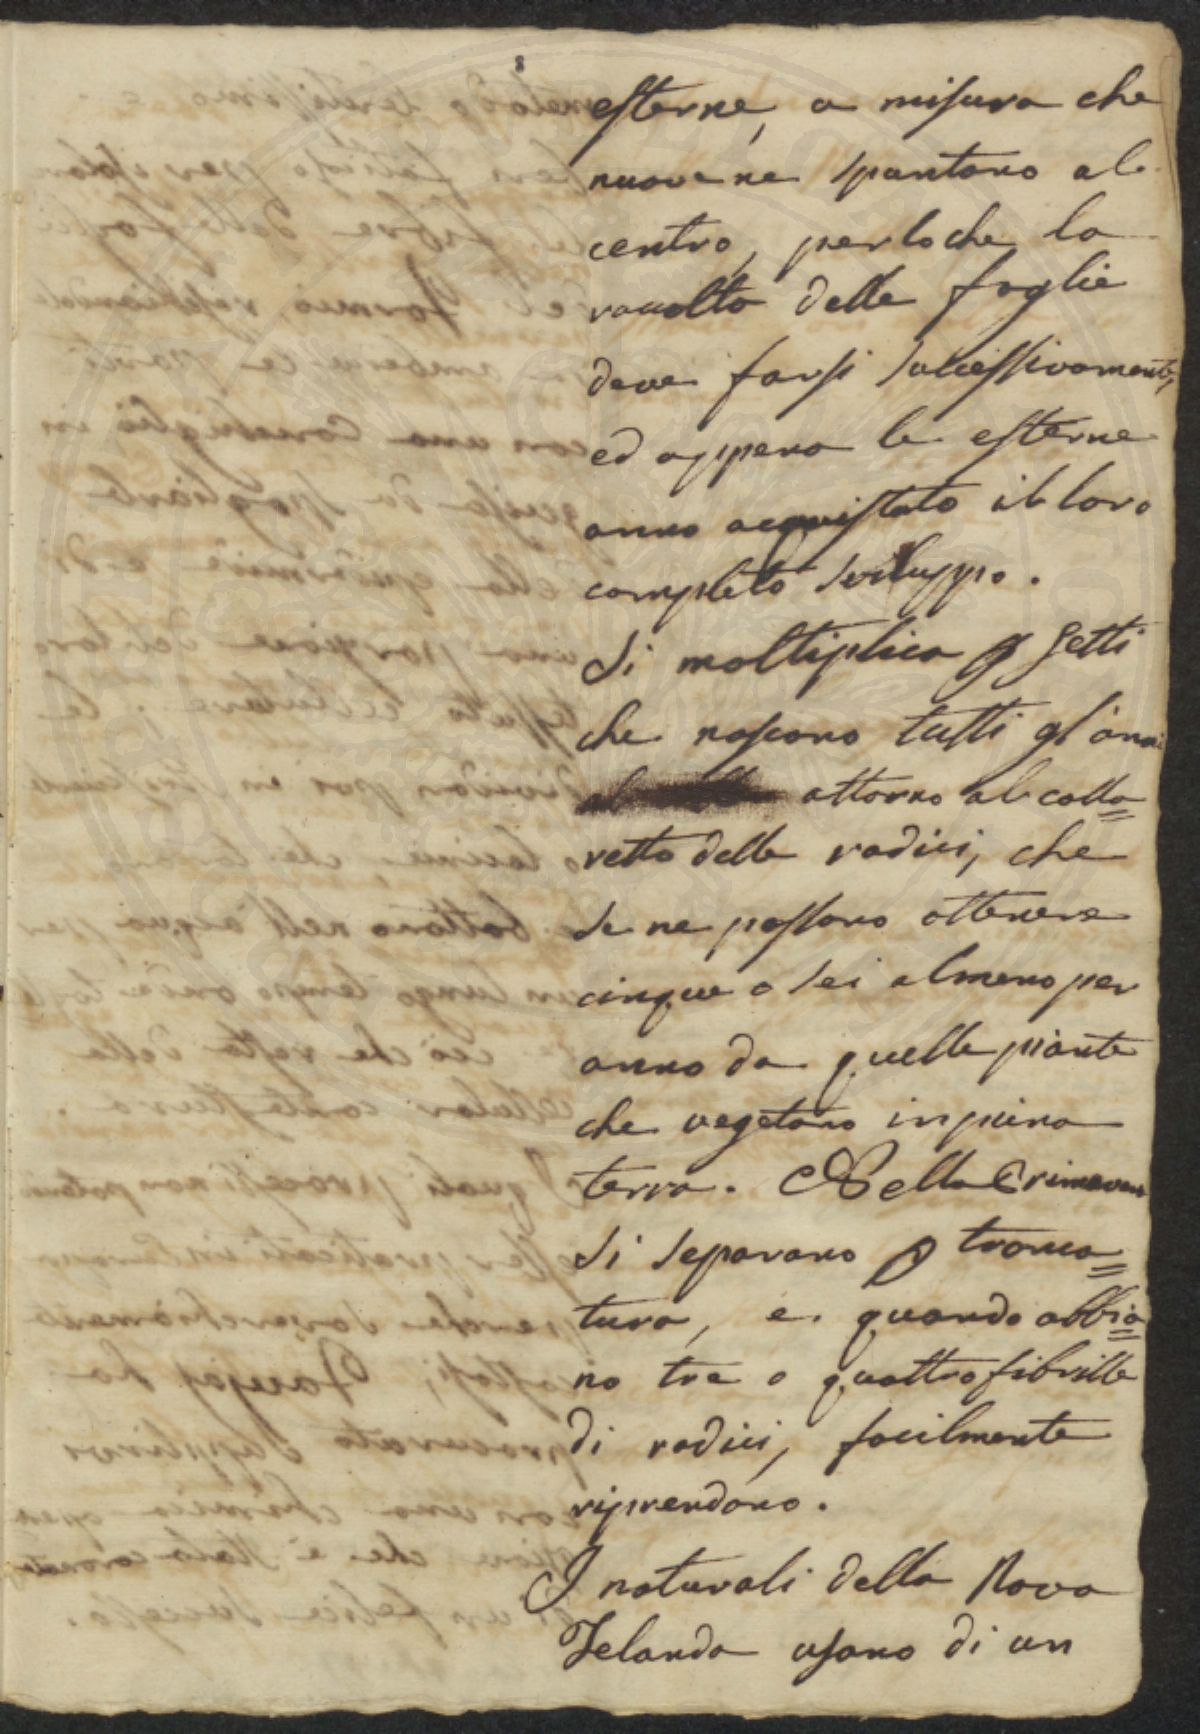 8
esterne, a misura che
nuove ne spuntano al
centro, perloche la
raccolta delle foglie
deve farsi successivamente,
ed appena le esterne
anno acquistato il loro
completo sviluppo.
Si moltiplica p getti
che nascono tutti gl'anni
al attorno al colla=
retto delle radici, che
se ne possono ottenere
cinque o sei almeno per
anno da quelle piante
che vegetano in piena
terra. Nella Primavera
si separano p tronca=
tura, e quando abbia=
no tre o quattro fibrille
di radici, facilmente
riprendono.
I naturali della Nova
Zelanda usano di un